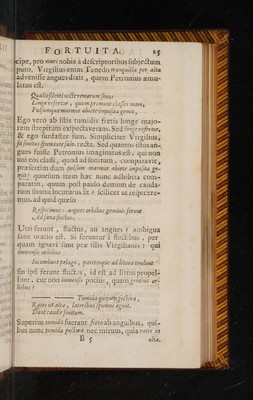 FORTUITA. 25
cipe, pro mari nobis à descriptoribus subjectum
puto. Virgilius enim Tenedo tranquilla per alta
advenisse angues dixit, quem Petronius æmu-
latus est.
Qualis silenti nocte remorum sonus
Longe refertur, quum premunt classes mare,
Pulsumque marmor abiete imposita gemit,
Ego vero ab istis tumidis fretis longe majo-
rem strepitum exspectaveram. Sed longe refertur,
& ego surdaster sum. Simpliciter Virgilius,
fit sonitus spumante salo. recte. Sed quantos illos an-
gues fuisse Petronius imaginatus est, qui non
uni eos classi, quod ad sonitum, comparavit,
præsertim dum pulsum marmor abiete imposita ge-
mit? quantum item hæc nunc adhibita com-
paratio, quum post paulo demum de cauda-
rum sonitu locuturus sit? scilicet ut reciperе-
mus. ad quid quæso
Respicimus: angues orbibus geminis ferunt
Ad saxa fluctus.
Utri ferunt, fluctus, an angues? ambigua
sane oratio est. Si feruntur à fluctibus, per
quam ignavi sunt præ illis Virgilianis: qui
immensis orbibus
Incumbunt pelago, pariterque ad litora tendunt
sin ipsi ferunt fluctus, id est ad littus propel-
lunt, cur non immensis potius, quam geminis or-
bibus?
Tumida quorum pectora,
Rates ut alta, lateribus spumas agunt.
Dant caudæ sonitum.
Superius tumida fuerant freta ab anguibus, qui-
bus nunc tumida pectora nec mirum, quia rates in
B 5 alta.